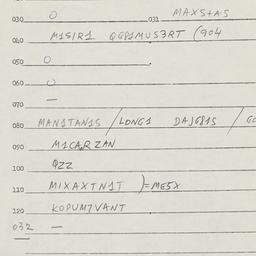 030 O 031 MAXS+AS
040 M1SIR1 QGP1MUS3RT (904
050 O
060 O
070 —
080 MAN1TAN1S / LONG1 DAJ6J1S / GO
090 M1CARZAN
100 QZZ
110 MIXAXTN1T )=ME5X
120 KOPUM7VANT
032 —